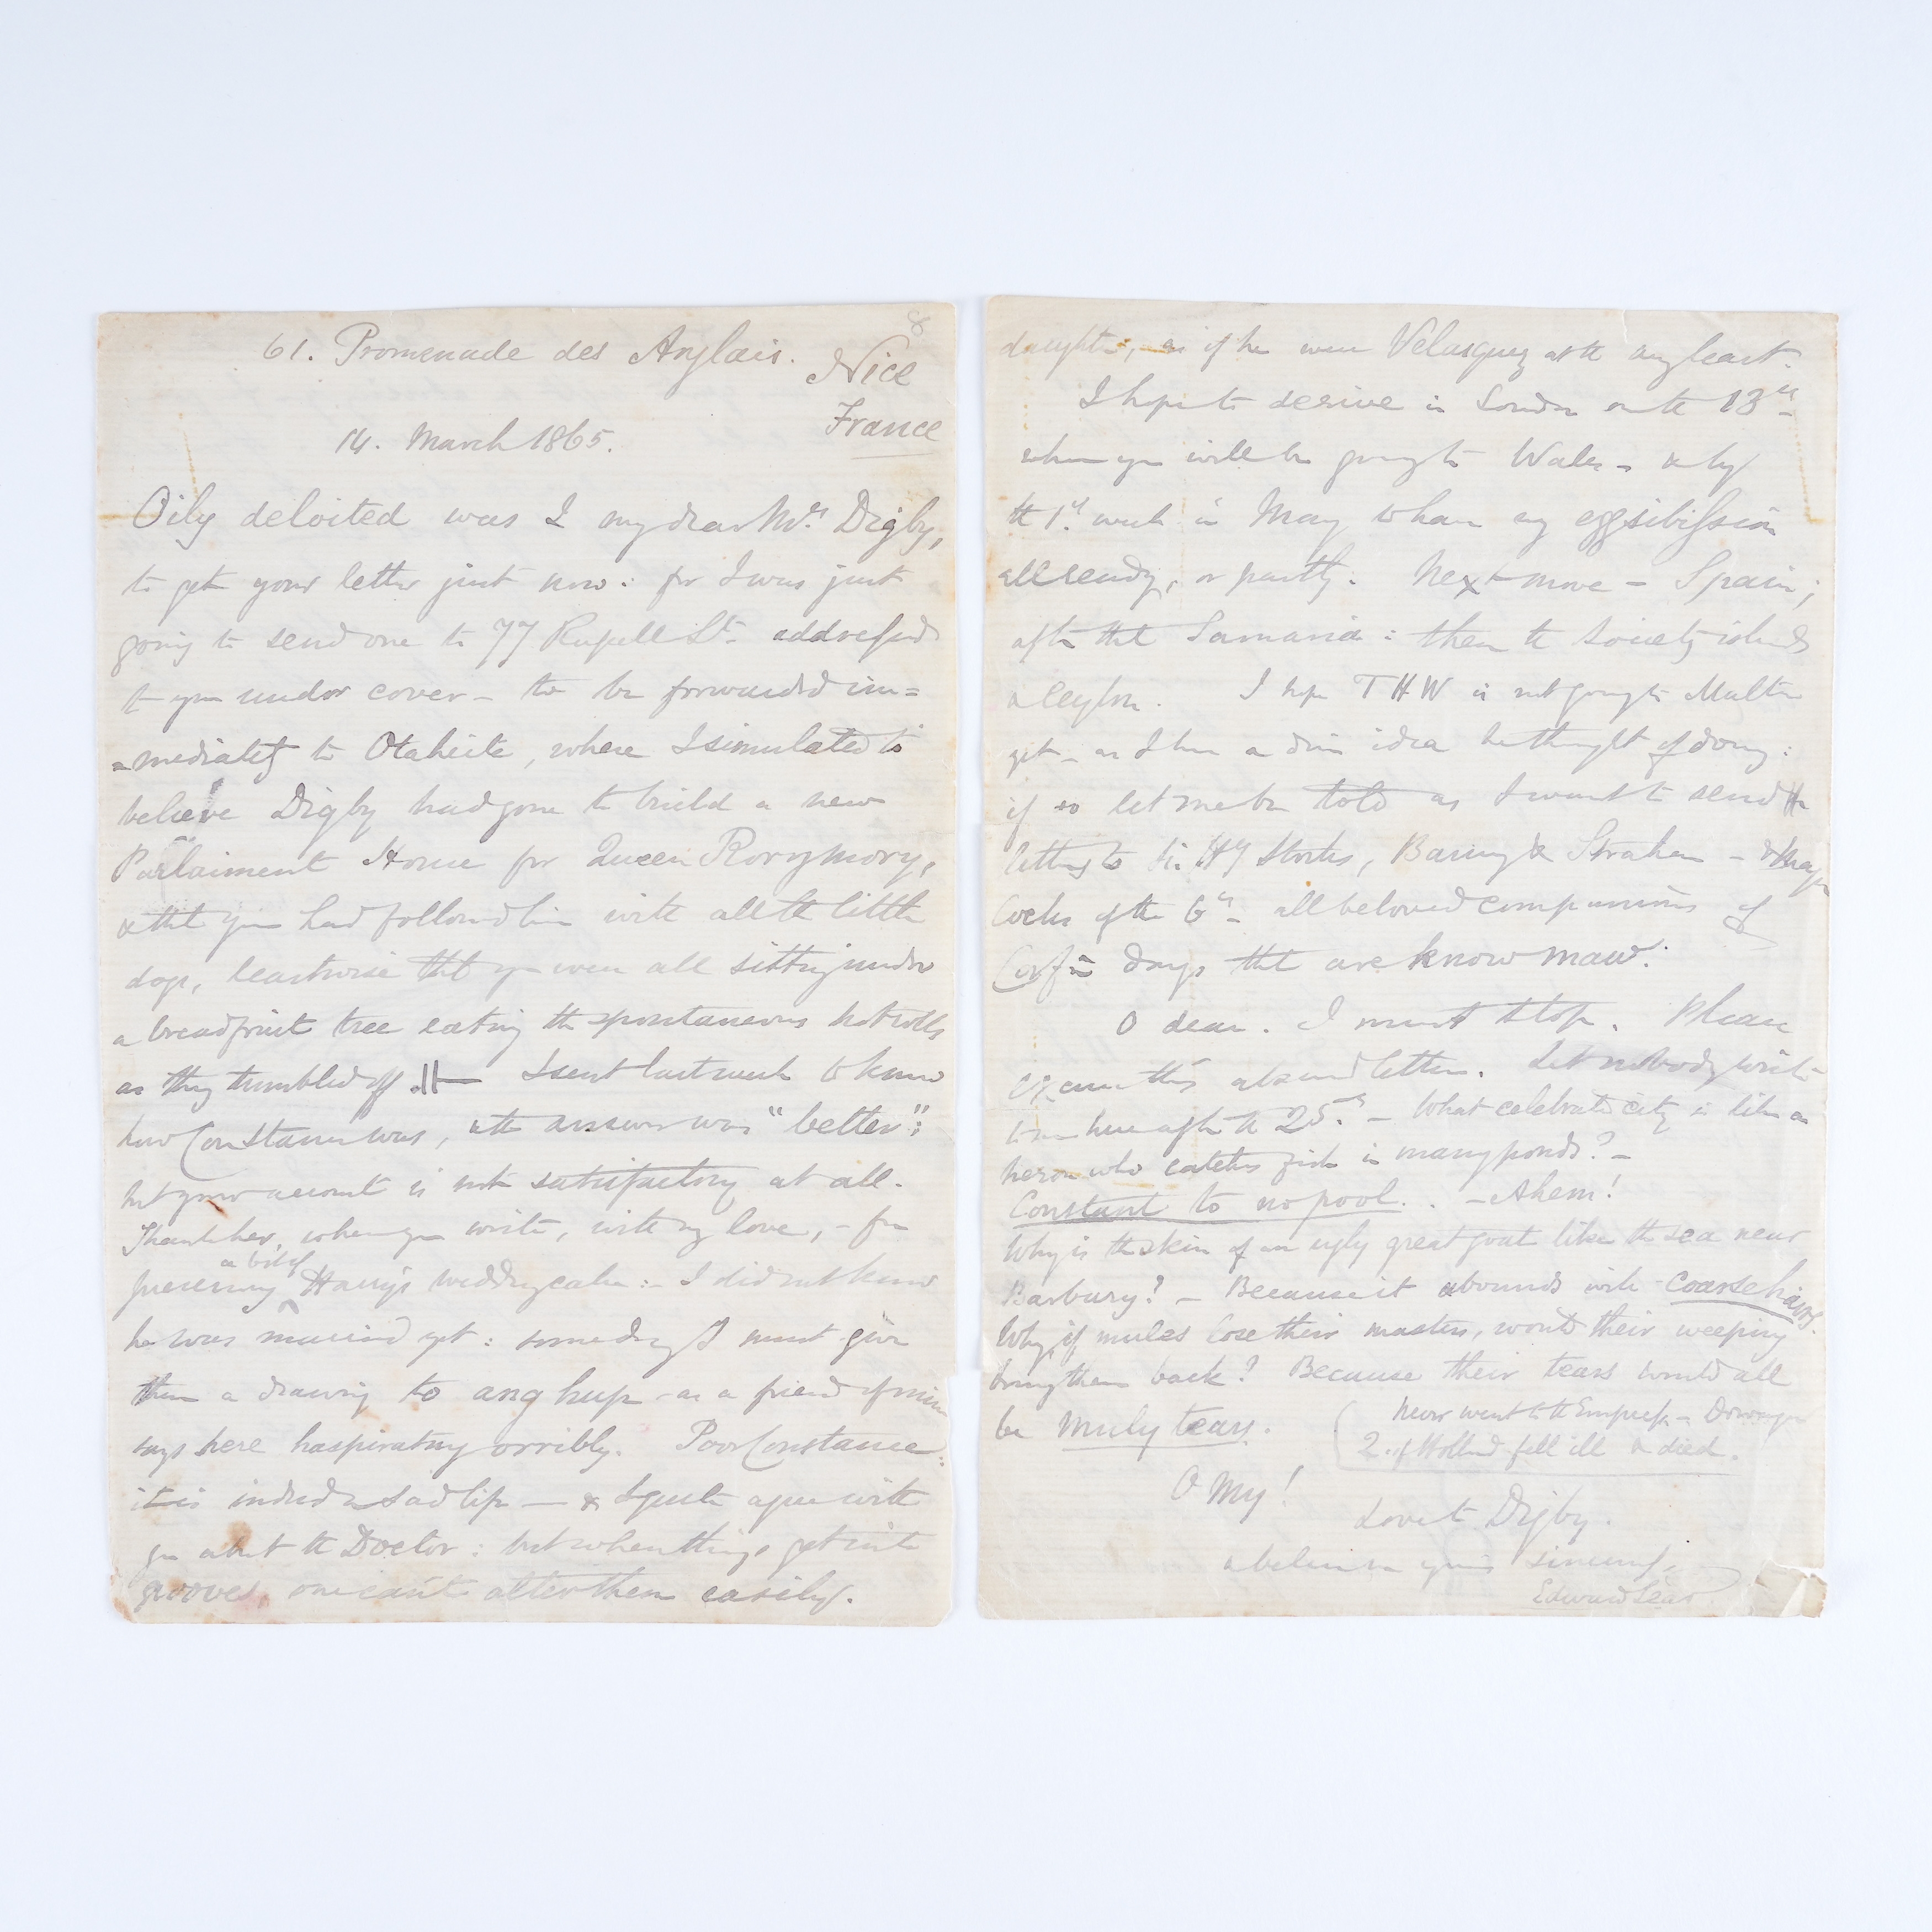 8
61. Promenade des Anglais.
Nice
France
14. March 1865.
Oily deloited was I my dear Mrs. Digby,
to get your letter just now: for I was just
going to send one to 77 Russell St. addressed
to you under cover – to be forwarded im=
=mediately to Otaheite, where I simulated to
believe Digby had gone to build a new
Parlaiment House for Queen Rorymory,
& that you had followed him with all the little
dogs, leastwise that you were all sitting under
a breadfruit tree eating the spontaneous hot rolls
as they tumbled off it. I sent last week to know
how Constance was, & the answer was "better":
but your account is not satisfactory at all.
Thank her, when you write, with my love, – for
a bit of
preserving Harry's wedding cake: – I did not know
he was married yet: some day I must give
them a drawing to ang hup – as a friend of mine
says here haspirating orribly. Poor Constance:
it is indeed a sad life — & I quite agree with
you about the Doctor: but when things get into
grooves, one can't alter them easily.
daughter, as if he were Velasquez at the very least.
I hope to derive in London on the 13th –
when you will be going to Wales – & by
the 1st. week in May to have my eggsibission
all ready, or partly. Next move – Spain;
after that Samaria: then the Society islands
& Ceylon. I hope THW is not going to Malta
yet – as I have a dim idea he thought of doing:
if so let me be told as I want to send
letters to Sir Hy Storks, Baring & Strahan –
Cocks of the 6th – all beloved companions of
Corfu days that are know maw.
O dear. I must stop. Please
excuse this absurd letter. Let nobody write
to me here after the 25th. – What celebrated city is like a
heron who catches fish in many ponds? –
Constant to no pool. . – Ahem!
Why is the skin of an ugly great goat like the sea near
Barbary? – Because it abounds with coarse hairs.
Why, if mules lose their masters, won't their weeping
bring them back? Because their tears would all
be Muly tears.
Never went to the Empress – Dowager
Q. of Holland fell ill & died.
O My!
Love to Digby.
& believe me yours sincerely,
Edward Lear.